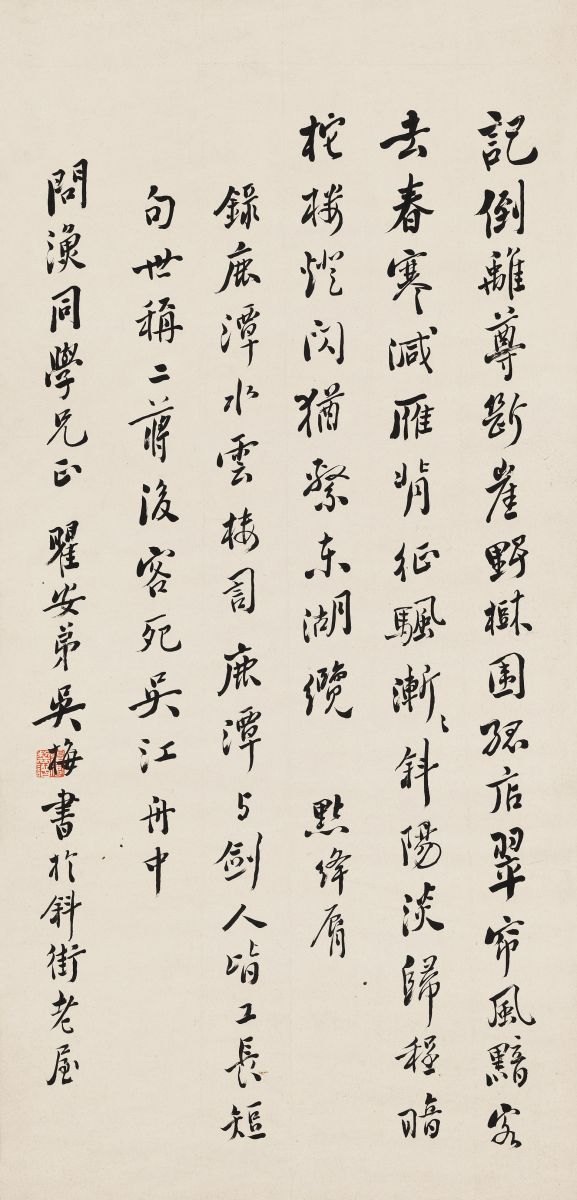 記倒離尊斷崖野樹圍孤店翠帘風黯客
去春寒減雁背征颿漸〻斜陽淡歸程暗
柁樓燈閃猶繫東湖纜 點絳脣
錄鹿潭水雲樓詞鹿潭与劍人皆工長短
句世稱二蔣後客死吳江舟中
問漁同學兄正 瞿安弟吳梅書於斜街老屋